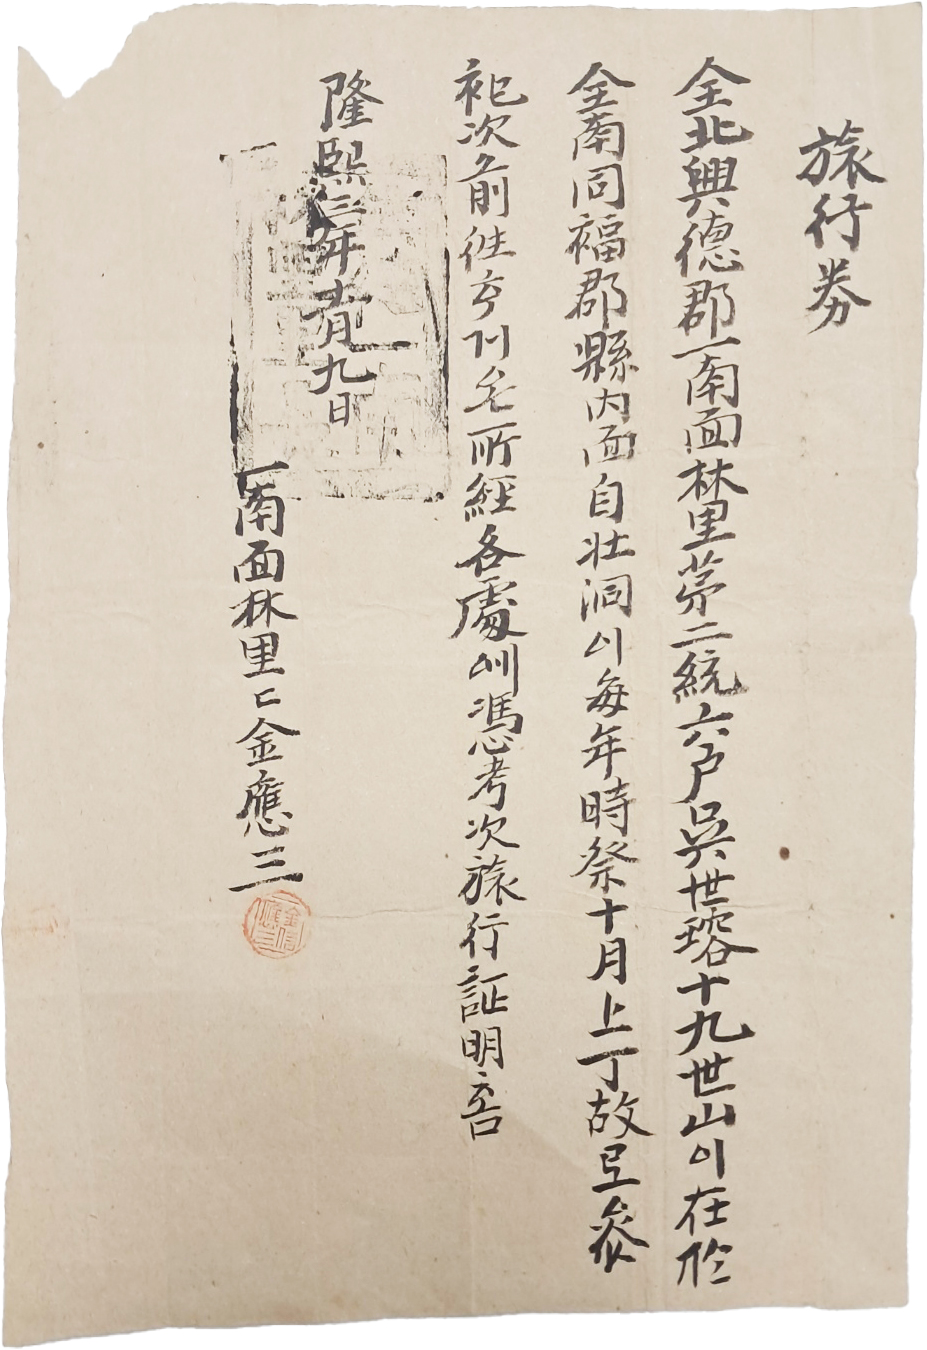 旅行券
全北興德郡一南面林里第二統六戶吳世瑢十九世山이在於
全南同福郡縣內面自壯洞이每年時祭十月上丁故로參
祀次前往호기로所經各處에憑考次旅行証明홈
隆熙三年十一月九日
一南面林里 金應三